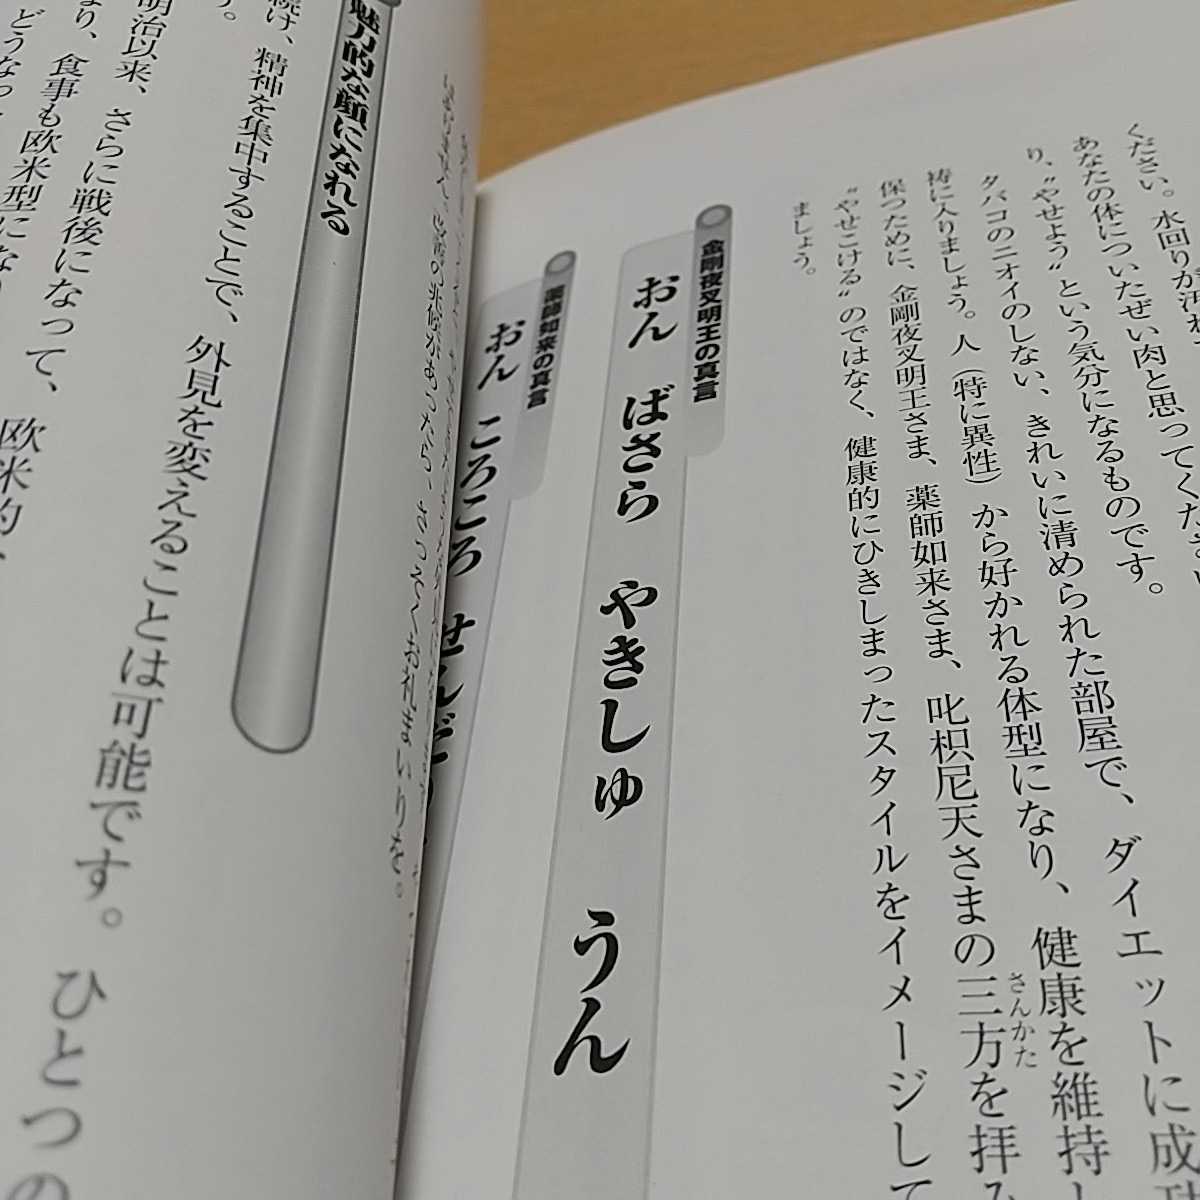 ください。水回りが汚れて
あなたの体についたぜい肉と思ってくださ
り、“やせよう”という気分になるものです。
タバコのニオイのしない、きれいに清められた部屋で、ダイエットに成
祷に入りましょう。人（特に異性）から好かれる体型になり、健康を維持し
保つために、金剛夜叉明王さま、薬師如来さま、叱枳尼天さまの三方を拝み
さんかた
“やせこける”のではなく、健康的にひきしまったスタイルをイメージして
ましょう。
金剛夜叉明王の真言
おん ばさら やきしゅ うん
薬師如来の真言
おん ころころ せんだ
改善の兆候があったら、さっそくお礼まいりを。
魅力的な顔になれる
続け、精神を集中することで、外見を変えることは可能です。ひとつの
す。
明治以来、さらに戦後になって、欧米的、
なり、食事も欧米型にな
どうなっ